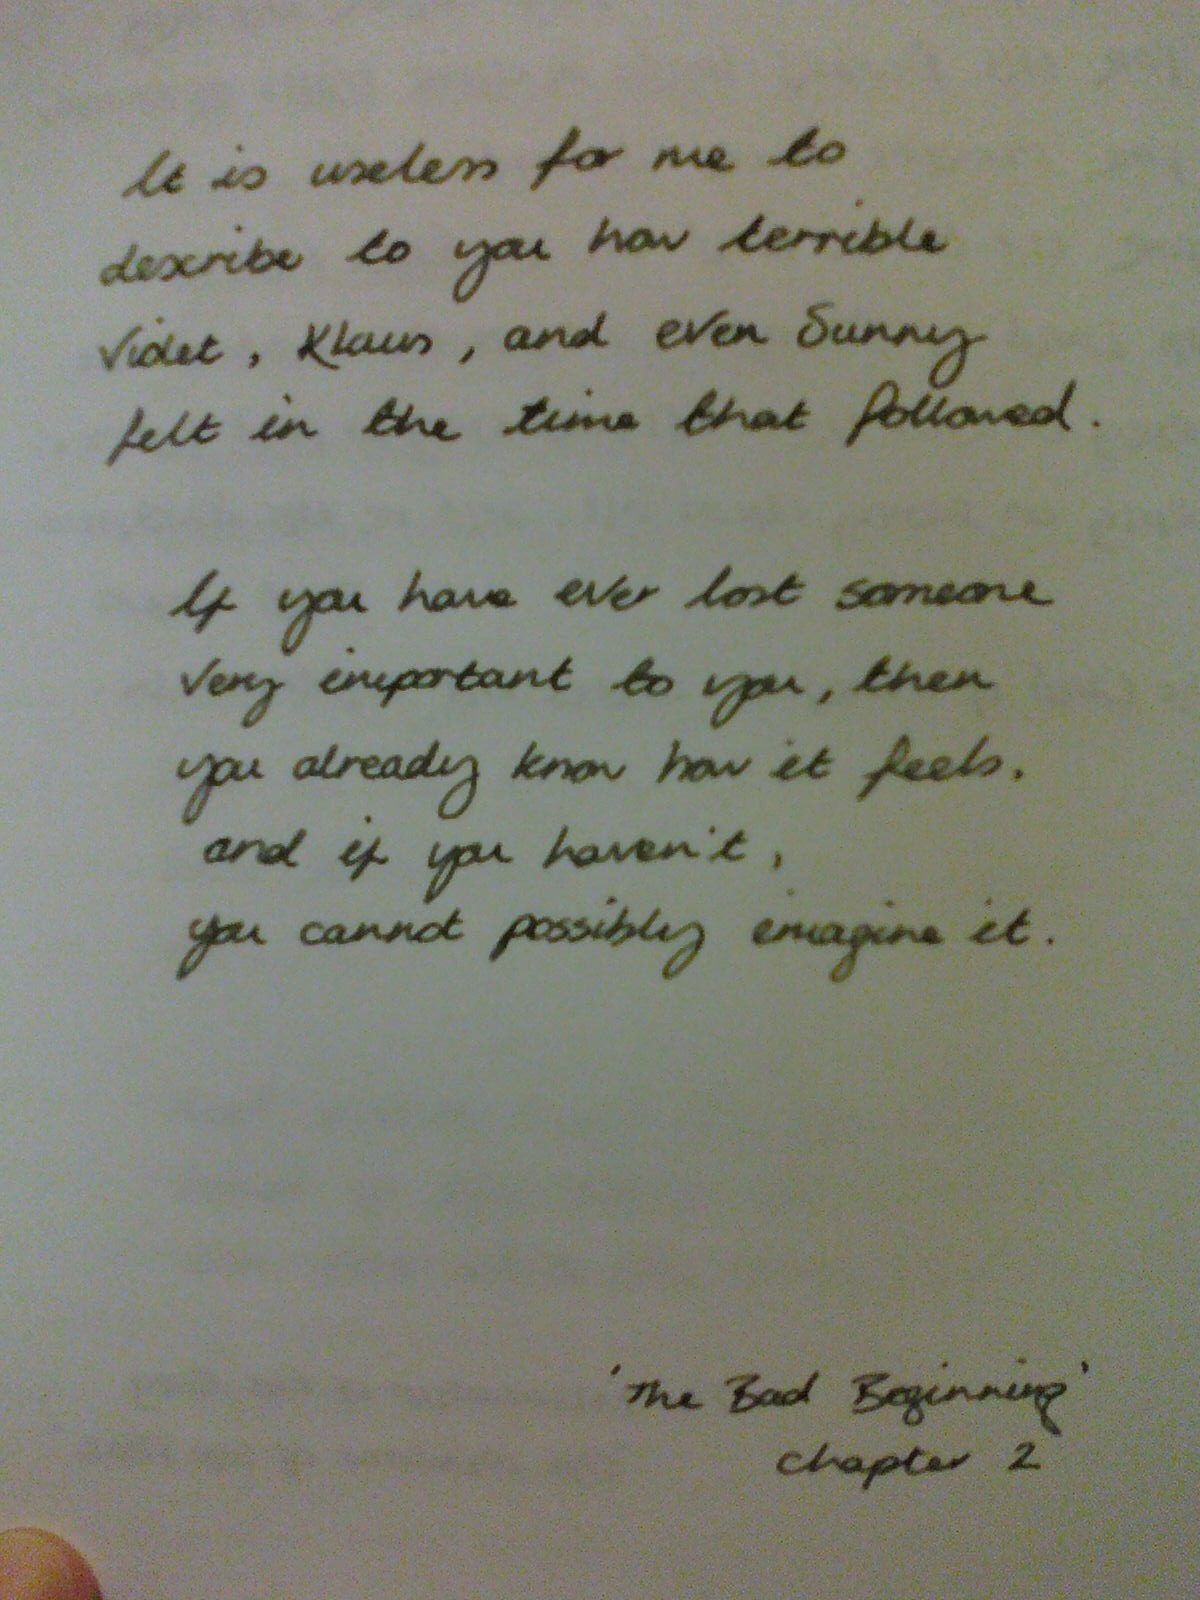 It is useless for me to
describe to you how terrible
Violet, Klaus, and even Sunny
felt in the time that followed.
If you have ever lost someone
very important to you, then
you already know how it feels.
and if you haven't,
you cannot possibly imagine it.
'The Bad Beginning'
chapter 2